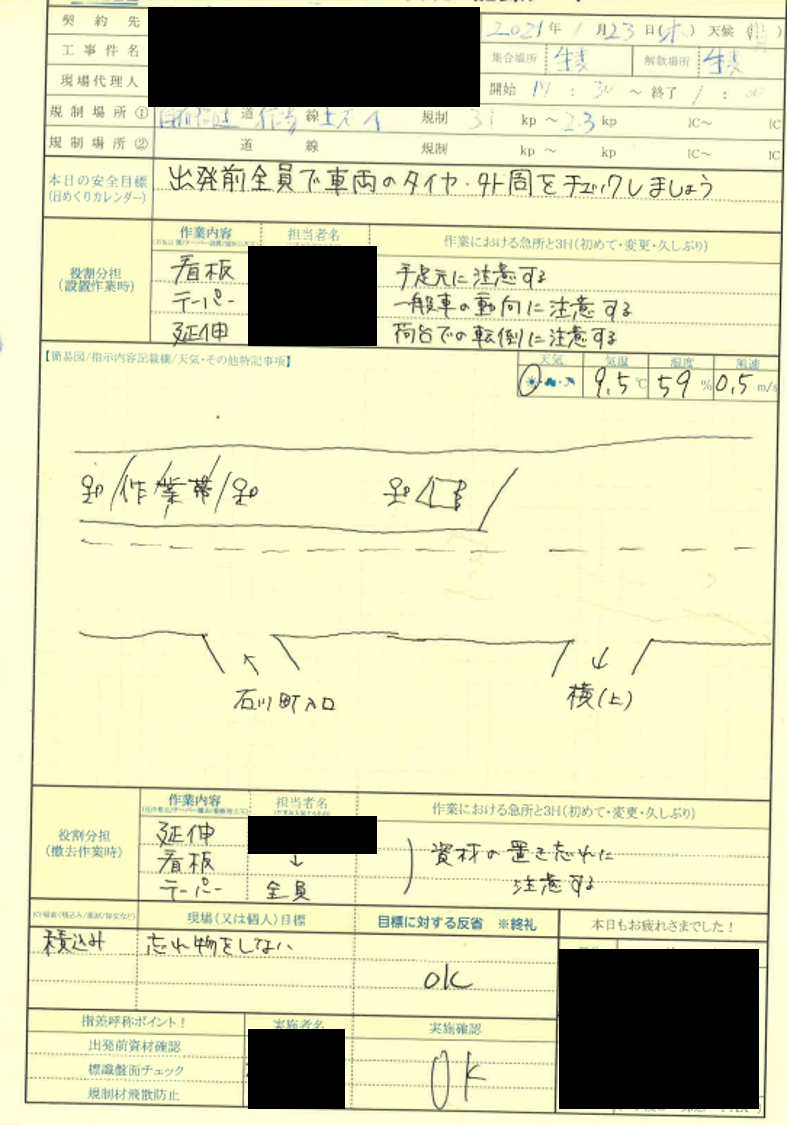 契約先
2021年 1月23日(木) 天候
工事件名
集合場所 生麦 解散場所 生麦
現場代理人
開始 : 30 ～ 終了 / : 00
規制場所① 道 線 規制 31 kp ～ 2.3 kp IC～ IC
規制場所② 道 線 規制 kp ～ kp IC～ IC
本日の安全目標 出発前全員で車両のタイヤ・外周をチェックしましょう
(日めくりカレンダー)
役割分担
(設置作業時)
作業内容 担当者名 作業における急所と3H(初めて・変更・久しぶり)
看板 手足元に注意する
テーパー 一般車の動向に注意する
延伸 荷台での転倒に注意する
【簡易図/指示内容記載欄/天気・その他特記事項】
天気 気温 湿度 風速
9.5℃ 59% 0.5m/s
作業帯
石川町入口
横(上)
役割分担
(撤去作業時)
作業内容 担当者名 作業における急所と3H(初めて・変更・久しぶり)
延伸
看板 ↓ 資材の置き忘れに
テーパー 全員 注意する
現場(又は個人)目標 目標に対する反省 ※終礼 本日もお疲れさまでした！
積込み 忘れ物をしない
OK
指差呼称ポイント！ 実施者名 実施確認
出発前資材確認
標識盤面チェック OK
規制材飛散防止